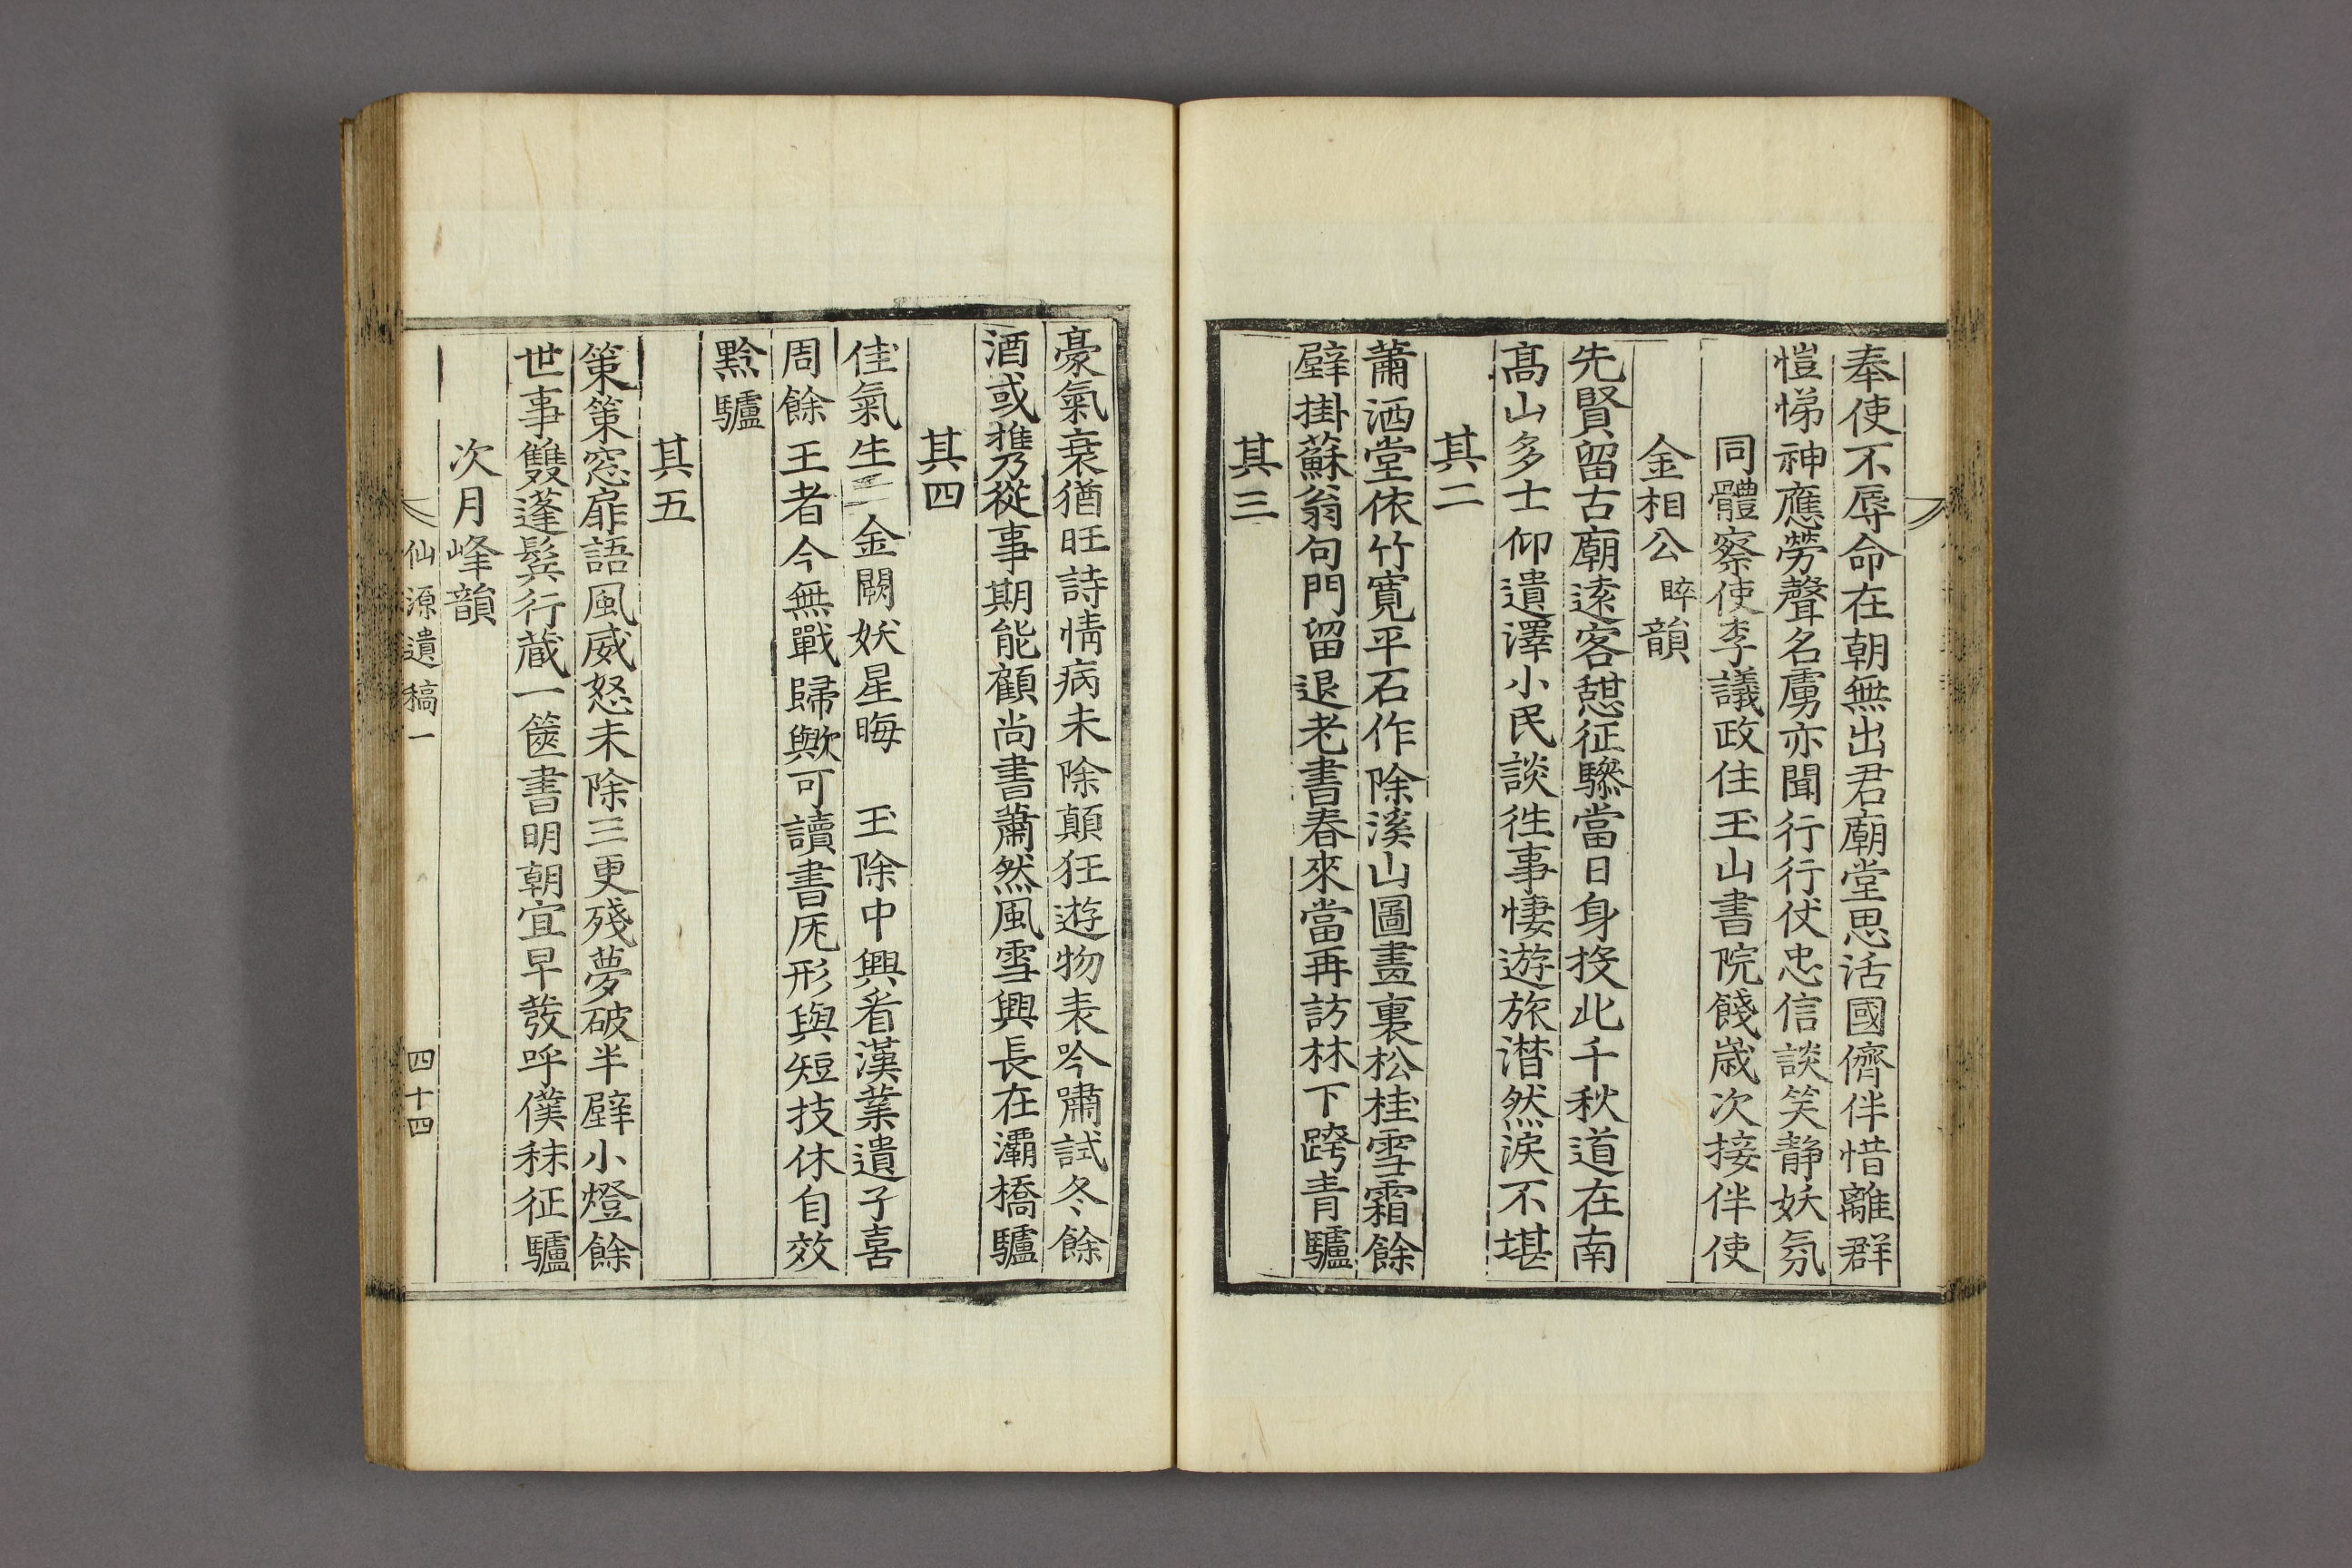 奉使不辱命在朝無出君廟堂思活國儕伴惜離群
愷悌神應勞聲名虜亦聞行行伏忠信談笑静妖氛
同體察使李議政住玉山書院餞歲次接伴使
金相公睟韻
先賢留古廟逺客憇征驂當日身投此千秋道在南
髙山多士仰遺澤小民談徃事悽遊旅潸然淚不堪
其二
蕭洒堂依竹寛平石作除溪山圖畫裏松桂雪霜餘
壁掛蘇翁句門留退老書春來當再訪林下跨青驢
其三
豪氣衰猶旺詩情病未除顛狂遊物表吟嘯試冬餘
酒或推乃從事期能顧尚書蕭然風雪興長在灞橋驢
其四
佳氣生金闕妖星晦玉除中興看漢業遺子喜
周餘王者今無戰歸歟可讀書厖形與短技休自效
黔驢
其五
策策窓扉語風威怒未除三更殘夢破半壁小燈餘
世事雙蓬鬂行蔵一篋書明朝宜早發呼僕秣征驢
次月峰韻
仙源遺稿一
四十四